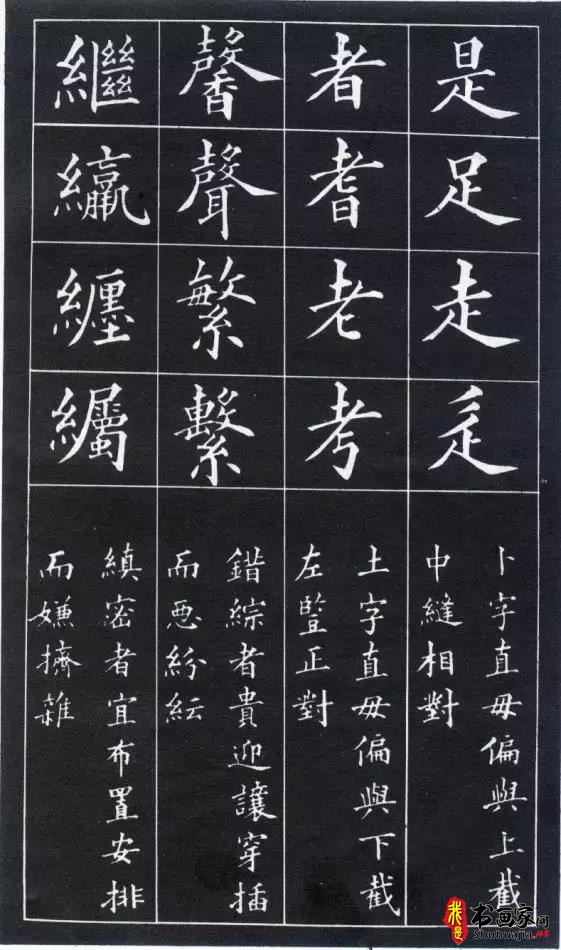 是足走辵
卜字直毋偏與上截
中縫相對
者耆老考
土字直毋偏與下截
左豎正對
馨聲繁繫
錯綜者貴迎讓穿插
而惡紛紜
繼纏
縝密者宜布置安排
而嫌擠雜
我是书画家网
Shuhuajia.net